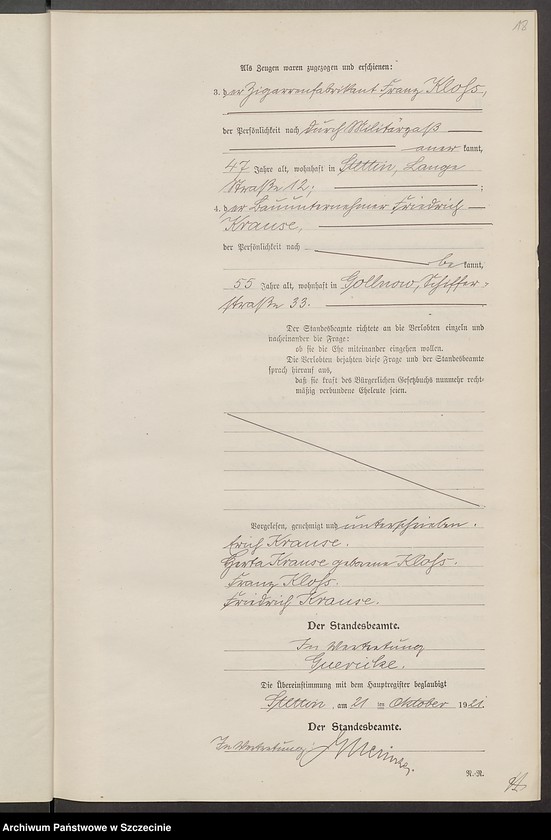 Als Zeugen waren zugezogen und erschienen:
3. der Zigarrenfabrikant Franz Kloss,
der Persönlichkeit nach durch Militärpaß
aner kannt,
47 Jahre alt, wohnhaft in Stettin, Lange
straße 12;
4. der Bauunternehmer Friedrich
Krause,
der Persönlichkeit nach
be kannt,
55 Jahre alt, wohnhaft in Gollnow, Schiffer-
straße 33.
Der Standesbeamte richtete an die Verlobten einzeln und
nacheinander die Frage:
ob sie die Ehe miteinander eingehen wollen.
Die Verlobten bejahten diese Frage und der Standesbeamte
sprach hierauf aus,
daß sie kraft des Bürgerlichen Gesetzbuchs nunmehr recht-
mäßig verbundene Eheleute seien.
Vorgelesen, genehmigt und unterschrieben.
Erich Krause.
Herta Krause geborene Kloss.
Franz Kloss.
Friedrich Krause.
Der Standesbeamte.
In Vertretung
Guericke.
Die Übereinstimmung mit dem Hauptregister beglaubigt
Stettin, am 21 ten Oktober 1921
Der Standesbeamte.
In Vertretung:
R.-R.
Archiwum Państwowe w Szczecinie